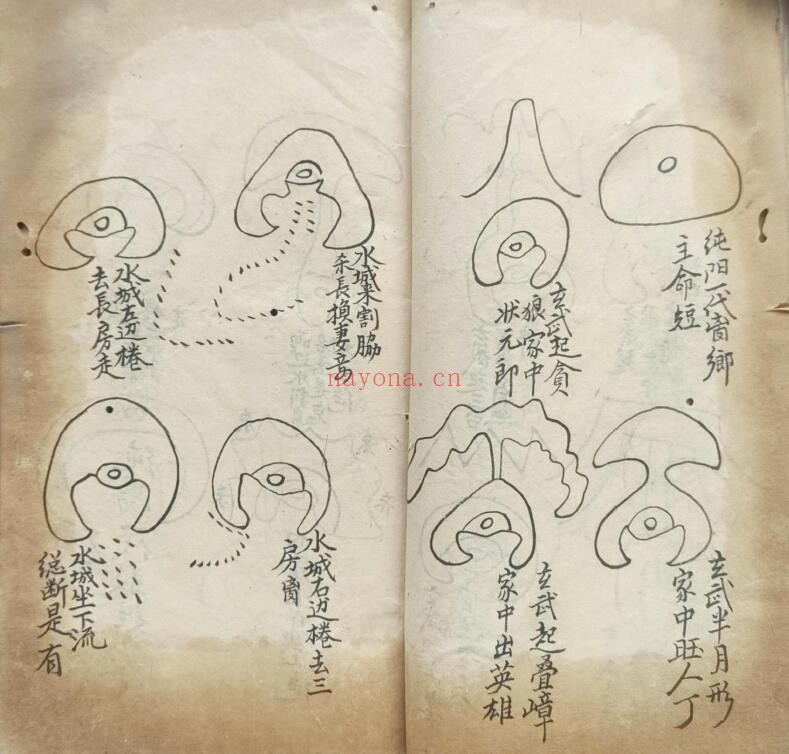 纯阳一代鄉
主命短
玄武起貪
狼家中
状元郎
玄武半月形
家中旺人丁
玄武起疊嶂
家中出英雄
水城来割脇
長換妻
水城左边棬
去長房走
水城右边棬去三
房
水城坐下流
断是有
nayona.cn